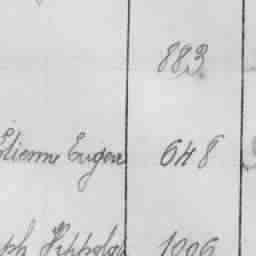 883
Etienne Eugen 648
ph Hippoly 1006